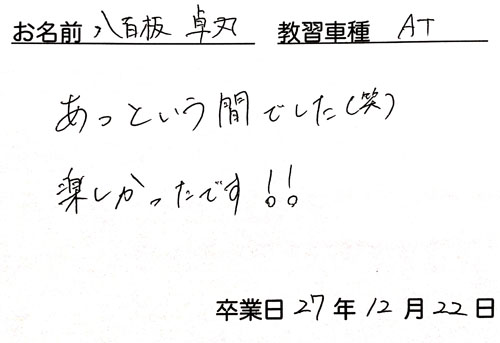 お名前 八百板 卓丸 教習車種 AT
あっという間でした(笑)
楽しかったです!!
卒業日 27年 12月 22日